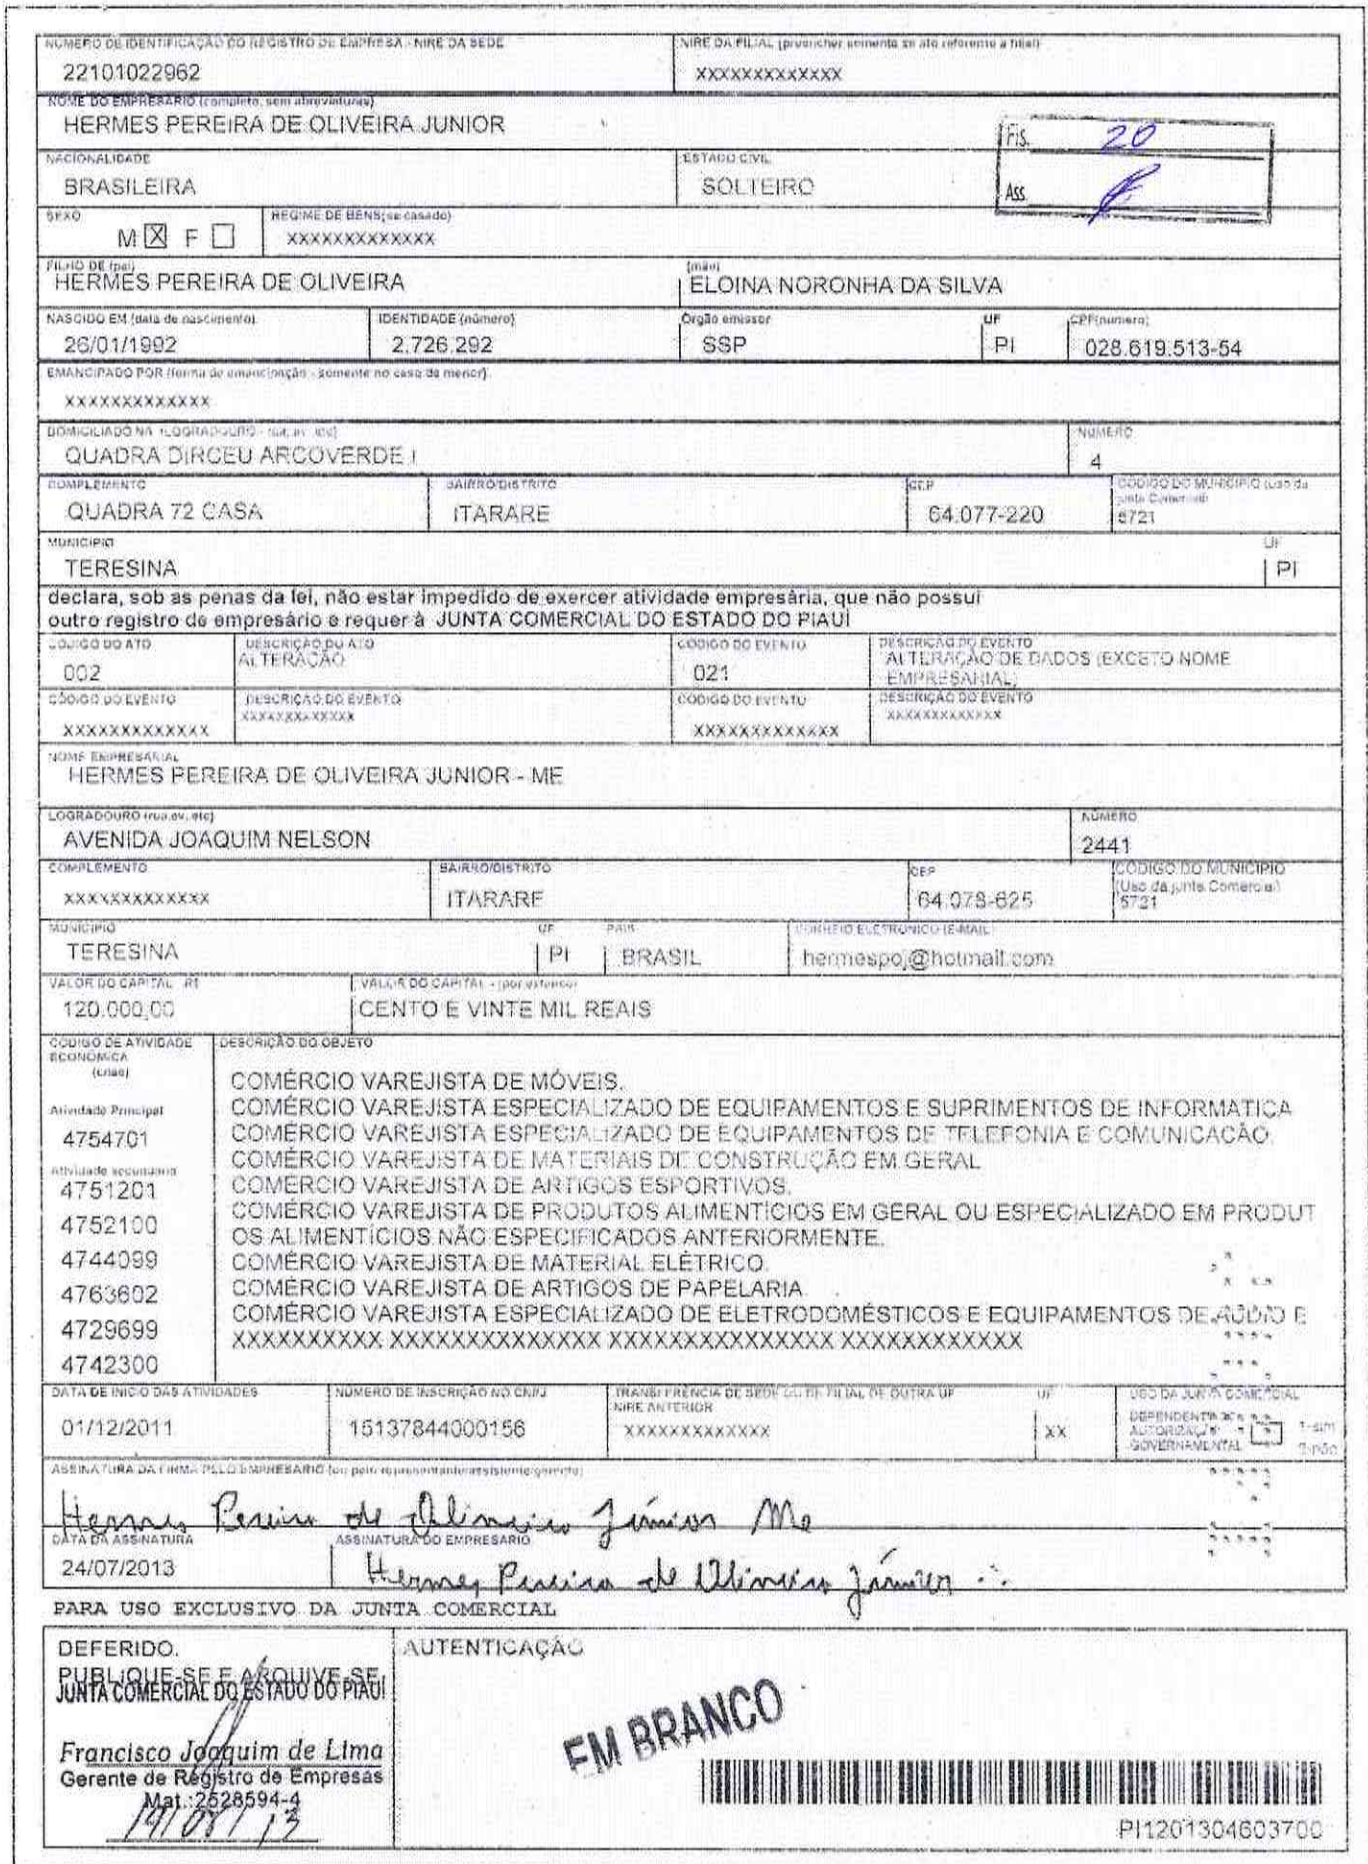 NÚMERO DE IDENTIFICAÇÃO DO REGISTRO DE EMPRESA - NIRE DA SEDE
NIRE DA FILIAL (preencher somente se ato referente a filial)
22101022962
XXXXXXXXXXXXX
NOME DO EMPRESÁRIO (completo, sem abreviaturas)
HERMES PEREIRA DE OLIVEIRA JUNIOR
Fls. 20
NACIONALIDADE
ESTADO CIVIL
BRASILEIRA
SOLTEIRO
Ass.
SEXO
REGIME DE BENS(se casado)
M X F
XXXXXXXXXXXXX
FILHO DE (pai)
(mãe)
HERMES PEREIRA DE OLIVEIRA
ELOINA NORONHA DA SILVA
NASCIDO EM (data de nascimento)
IDENTIDADE (número)
Órgão emissor
UF
CPF(número)
26/01/1992
2.726.292
SSP
PI
028.619.513-54
EMANCIPADO POR (forma de emancipação - somente no caso de menor)
XXXXXXXXXXXXX
DOMICILIADO NA (LOGRADOURO - rua, av, etc)
NÚMERO
QUADRA DIRCEU ARCOVERDE I
4
COMPLEMENTO
BAIRRO/DISTRITO
CEP
CÓDIGO DO MUNICÍPIO (Uso da junta Comercial)
QUADRA 72 CASA
ITARARE
64.077-220
5721
MUNICÍPIO
UF
TERESINA
PI
declara, sob as penas da lei, não estar impedido de exercer atividade empresária, que não possui
outro registro de empresário e requer à JUNTA COMERCIAL DO ESTADO DO PIAUÍ
CÓDIGO DO ATO
DESCRIÇÃO DO ATO
CÓDIGO DO EVENTO
DESCRIÇÃO DO EVENTO
002
ALTERAÇÃO
021
ALTERAÇÃO DE DADOS (EXCETO NOME
EMPRESARIAL)
CÓDIGO DO EVENTO
DESCRIÇÃO DO EVENTO
CÓDIGO DO EVENTO
DESCRIÇÃO DO EVENTO
XXXXXXXXXXXXX
XXXXXXXXXXXXX
XXXXXXXXXXXXX
XXXXXXXXXXXXX
NOME EMPRESARIAL
HERMES PEREIRA DE OLIVEIRA JUNIOR - ME
LOGRADOURO (rua,av, etc)
NÚMERO
AVENIDA JOAQUIM NELSON
2441
COMPLEMENTO
BAIRRO/DISTRITO
CEP
CÓDIGO DO MUNICÍPIO
(Uso da junta Comercial)
XXXXXXXXXXXXX
ITARARE
64.078-625
5721
MUNICÍPIO
UF
PAÍS
CORREIO ELETRÔNICO (E-MAIL)
TERESINA
PI
BRASIL
hermespoj@hotmail.com
VALOR DO CAPITAL - R$
VALOR DO CAPITAL - (por extenso)
120.000,00
CENTO E VINTE MIL REAIS
CÓDIGO DE ATIVIDADE
ECONÔMICA
(cnae)
DESCRIÇÃO DO OBJETO
Atividade Principal
4754701
Atividade secundária
4751201
4752100
4744099
4763602
4729699
4742300
COMÉRCIO VAREJISTA DE MÓVEIS.
COMÉRCIO VAREJISTA ESPECIALIZADO DE EQUIPAMENTOS E SUPRIMENTOS DE INFORMATICA
COMÉRCIO VAREJISTA ESPECIALIZADO DE EQUIPAMENTOS DE TELEFONIA E COMUNICACÃO.
COMÉRCIO VAREJISTA DE MATERIAIS DE CONSTRUÇÃO EM GERAL
COMÉRCIO VAREJISTA DE ARTIGOS ESPORTIVOS.
COMÉRCIO VAREJISTA DE PRODUTOS ALIMENTÍCIOS EM GERAL OU ESPECIALIZADO EM PRODUT
OS ALIMENTÍCIOS NÃO ESPECIFICADOS ANTERIORMENTE.
COMÉRCIO VAREJISTA DE MATERIAL ELÉTRICO.
COMÉRCIO VAREJISTA DE ARTIGOS DE PAPELARIA
COMÉRCIO VAREJISTA ESPECIALIZADO DE ELETRODOMÉSTICOS E EQUIPAMENTOS DE ÁUDIO E
XXXXXXXXXX XXXXXXXXXXXXXX XXXXXXXXXXXXXXX XXXXXXXXXXXX
DATA DE INÍCIO DAS ATIVIDADES
NÚMERO DE INSCRIÇÃO NO CNPJ
TRANSFERÊNCIA DE SEDE OU DE FILIAL DE OUTRA UF
NIRE ANTERIOR
UF
USO DA JUNTA COMERCIAL
01/12/2011
15137844000156
XXXXXXXXXXXXX
XX
DEPENDENTE DE
AUTORIZAÇÃO
GOVERNAMENTAL
1-sim
3-não
ASSINATURA DA FIRMA PELO EMPRESÁRIO (ou pelo representante/assistente/gerente)
Hermes Pereira de Oliveira Júnior Me
DATA DA ASSINATURA
ASSINATURA DO EMPRESÁRIO
24/07/2013
Hermes Pereira de Oliveira Júnior
PARA USO EXCLUSIVO DA JUNTA COMERCIAL
DEFERIDO.
PUBLIQUE-SE E ARQUIVE-SE
JUNTA COMERCIAL DO ESTADO DO PIAUÍ
Francisco Joaquim de Lima
Gerente de Registro de Empresas
Mat.:2528594-4
19/08/13
AUTENTICAÇÃO
EM BRANCO
PI1201304603700